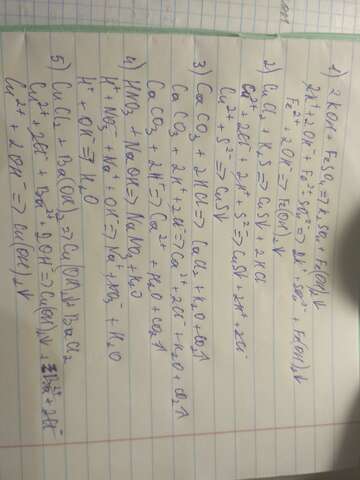 1) 2KOH + FeSO₄ => K₂SO₄ + Fe(OH)₂↓
2K⁺ + 2OH⁻ + Fe²⁺ SO₄²⁻ => 2K⁺ SO₄²⁻ + Fe(OH)₂↓
Fe²⁺ + 2OH⁻ => Fe(OH)₂↓
2) CuCl₂ + K₂S => CuS↓ + 2KCl
Cu²⁺ + 2Cl⁻ + 2K⁺ + S²⁻ => CuS↓ + 2K⁺ + 2Cl⁻
Cu²⁺ + S²⁻ => CuS↓
3) CaCO₃ + 2HCl => CaCl₂ + H₂O + CO₂↑
CaCO₃ + 2H⁺ + 2Cl⁻ => Ca²⁺ + 2Cl⁻ + H₂O + CO₂↑
CaCO₃ + 2H⁺ => Ca²⁺ + H₂O + CO₂↑
4) HNO₃ + NaOH => NaNO₃ + H₂O
H⁺ + NO₃⁻ + Na⁺ + OH⁻ => Na⁺ + NO₃⁻ + H₂O
H⁺ + OH⁻ => H₂O
5) CuCl₂ + Ba(OH)₂ => Cu(OH)₂↓ + BaCl₂
Cu²⁺ + 2Cl⁻ + Ba²⁺ 2OH⁻ => Cu(OH)₂↓ + Ba²⁺ + 2Cl⁻
Cu²⁺ + 2OH⁻ => Cu(OH)₂↓